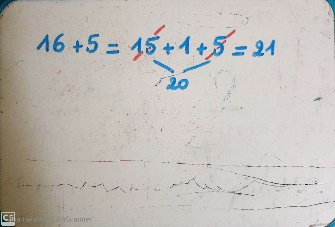 16 + 5 = 15 + 1 + 5 = 21
20
CS